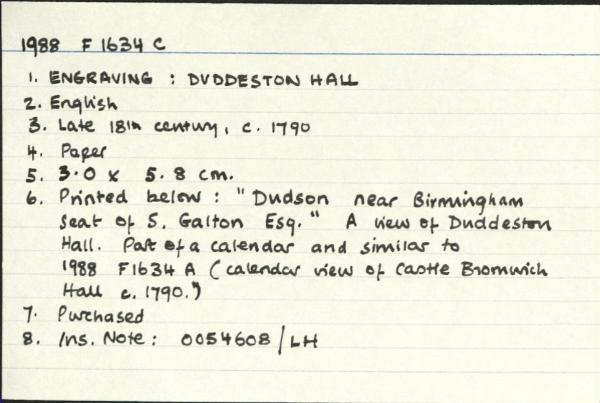 1988 F 1634 C
1. ENGRAVING : DUDDESTON HALL
2. English
3. Late 18th century, c. 1790
4. Paper
5. 3.0 x 5.8 cm.
6. Printed below : "Dudson near Birmingham
Seat of S. Galton Esq." A view of Duddeston
Hall. Part of a calendar and similar to
1988 F1634 A (calendar view of Castle Bromwich
Hall c. 1790.")
7. Purchased
8. Ins. Note : 0054608/LH